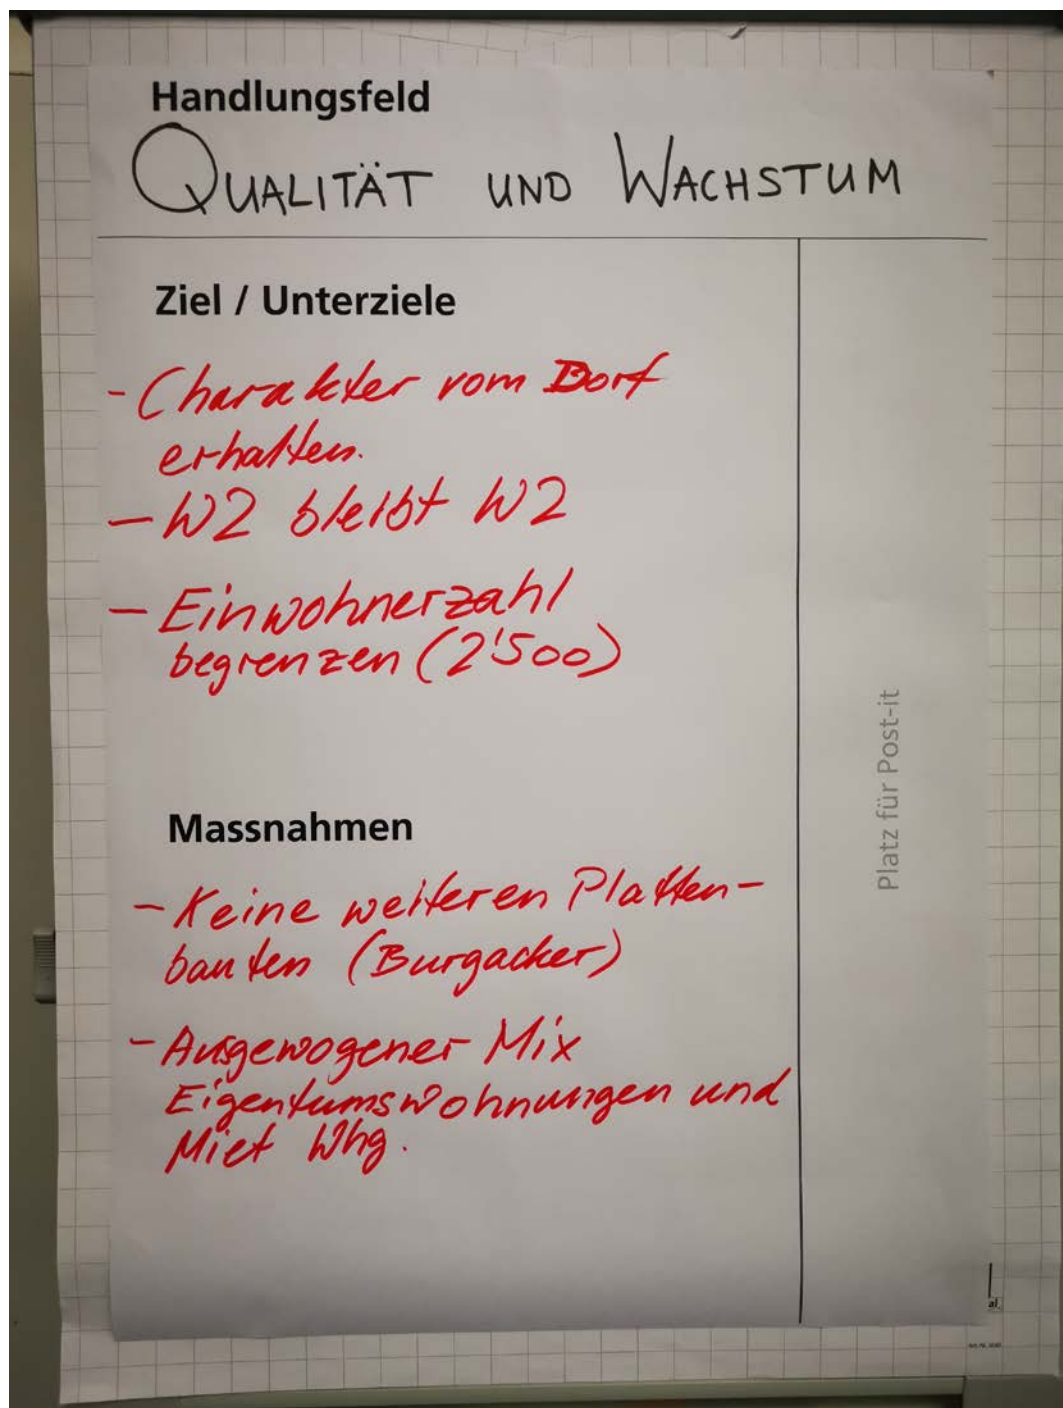 Handlungsfeld
QUALITÄT UND WACHSTUM
Ziel / Unterziele
- Charakter vom Dorf
erhalten.
- W2 bleibt W2
- Einwohnerzahl
begrenzen (2'500)
Platz für Post-it
Massnahmen
- Keine weiteren Platten-
bauten (Burgacker)
- Ausgewogener Mix
Eigentumswohnungen und
Miet Whg.
al.